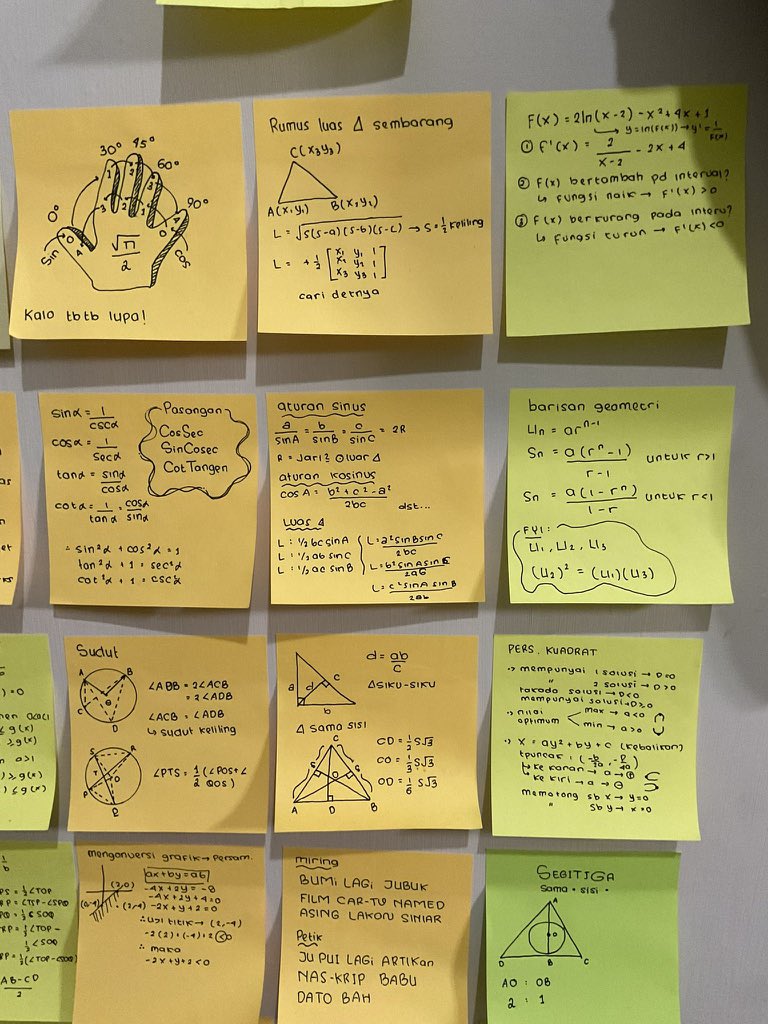 30° 45° 60°
0° 90°
1 2 3
0 3 2 1 4
4 0
√n
2
Sin cos
Kalo tbtb lupa!
Rumus luas Δ sembarang
C(x₃y₃)
A(x₁y₁) B(x₂y₂)
L = √s(s-a)(s-b)(s-c) → s = ½ keliling
L = + ½ [x₁ y₁ 1
y₂ 1
x₃ y₃ 1]
cari detnya
F(x) = 2ln(x-2) - x² + 4x + 1
↳ y = ln(F(x)) → y' = 1/F(x)
① F'(x) = 2/(x-2) - 2x + 4
② F(x) bertambah pd interval?
↳ fungsi naik → F'(x) > 0
③ F(x) berkurang pada interv?
↳ fungsi turun → F'(x) < 0
sin α = 1/csc α
cos α = 1/sec α
tan α = sin α/cos α
cot α = 1/tan α = cos α/sin α
∴ sin²α + cos²α = 1
tan²α + 1 = sec²α
cot²α + 1 = csc²α
Pasangan
CosSec
SinCosec
CotTangen
aturan sinus
a/sinA = b/sinB = c/sinC = 2R
R = Jari² ⊙ luar Δ
aturan kosinus
cos A = (b² + c² - a²)/2bc dst...
Luas Δ
L = ½ bc sin A
L = ½ ab sin C
L = ½ ac sin B
L = a² sin B sin C/2bc
L = c² sin A sin B/2ab
barisan geometri
Un = arⁿ⁻¹
Sn = a(rⁿ-1)/r-1 untuk r>1
Sn = a(1-rⁿ)/1-r untuk r<1
FYI:
U₁, U₂, U₃
(U₂)² = (U₁)(U₃)
Sudut
A B
θ
C D
∠ACB = ∠ADB
↳ sudut keliling
S T
P O
∠PTS = ½ (∠POS + ∠
QOS)
a d c
b
d = ab/c
Δ SIKU-SIKU
Δ sama sisi
C
S S
O
A D B
CD = ½ s√3
CO = ⅓ s√3
OD = ⅙ s√3
PERS. KUADRAT
·> mempunyai 1 solusi → D=0
" 2 solusi → D>0
takada solusi → D<0
mempunyai solusi → D≥0
·> nilai optimum
max → a<0
min → a>0
·> x = ay² + by + c (kebalikan)
tpuncak :
↳ ke kanan → a → ⊕
ke kiri → a → ⊖
memotong sb x → y=0
" sb y → x=0
mengonversi grafik → Persam.
ax+by=ab
(2,-4)
-4x+2y = -8
-4x+2y+4=0
-2x+y+2=0
∴ uji titik → (2,-4)
-2(2)+(-4)+2 <0
∴ maka
-2x+y+2<0
miring
BUMI LAGI JUBUK
FILM CAR-TU NAMED
ASING LAKON SINIAR
Petik
JU PUI LAGI ARTIKan
NAS-KRIP BABU
DATO BAH
SEGITIGA
sama - sisi
A
O
D B C
AO : OB
2 : 1
g(x)
AB-CD
2